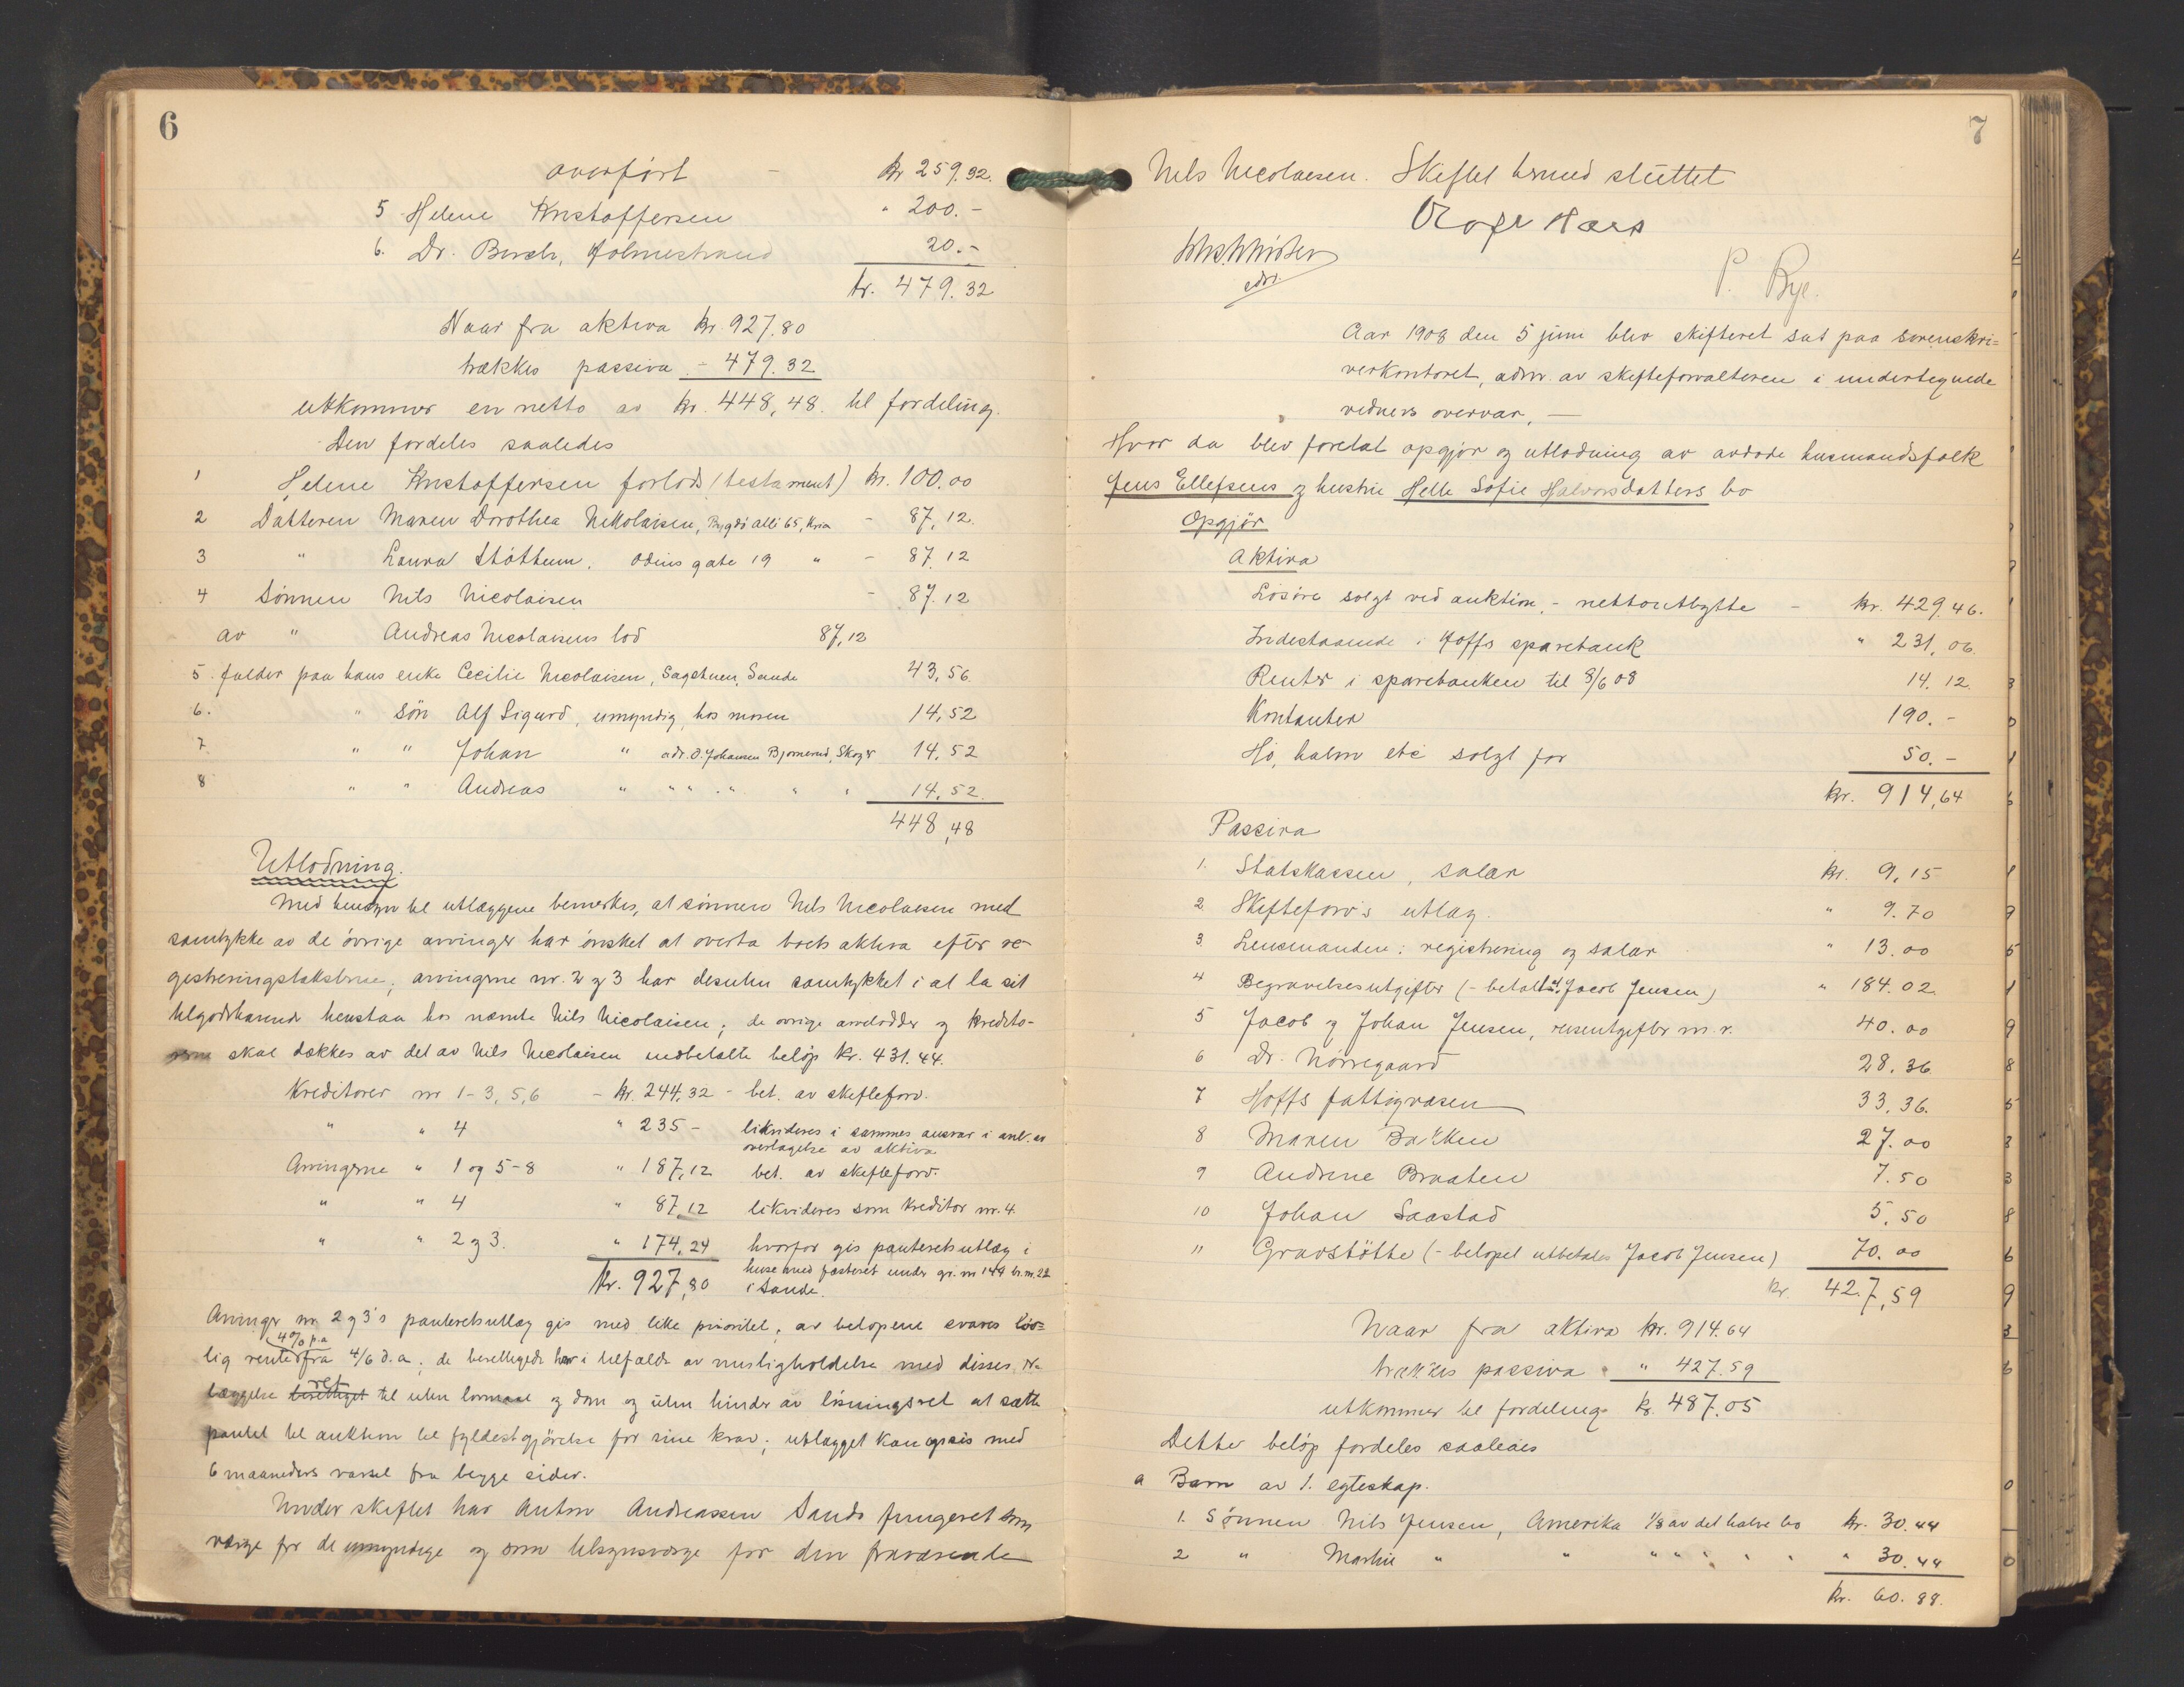 6
overført - kr 259.32.
5 Helene Kristoffersen " 200.-
6. Dr. Borch, Holmestrand 20.-
kr. 479.32
Naar fra aktiva kr. 927.80
trækkes passiva - 479.32
utkommer en netto av kr. 448,48. til fordeling.
Den fordeles saaledes
1 Helene Kristoffersen forlods (testament) kr. 100.00
2 Datteren Maren Dorothea Nikolaisen, Bygdö allé 65, Kria - 87,12.
3 " Laura Støttum, Odins gate 19 " - 87.12
4 Sønnen Nils Nicolaisen - 87.12
av " Andreas Nicolaisens lod 87,12
5. falder paa hans enke Cecilie Nicolaisen, Sagstuen, Sande 43,56.
6. " søn Alf Sigurd, umyndig, hos moren 14,52
7 " " Johan " adr. O. Johansen Bjørnerud, Skoger 14,52
8 " " Andreas " " " " " " 14,52.
448,48
Utlodning.
Med hensyn til utlæggene bemerkes, at sønnen Nils Nicolaisen med
samtykke av de øvrige arvinger har ønsket at overta boets aktiva efter re-
gistreringstaksterne; arvingerne nr. 2 og 3 har desuten samtykket i at la sit
tilgodehavende henstaa hos nævnte Nils Nicolaisen; de øvrige arvelodder og kredito-
rerne skal dækkes av det av Nils Nicolaisen indbetalte beløp kr. 431.44.
Kreditorer nr 1-3, 5,6 - kr. 244,32 - bet. av skifteforv.
" " 4 " 235 - likvideres i sammes ansvar i anl. av
overtagelse av aktiva
Arvingerne " 1 og 5-8 " 187,12 bet. av skifteforv.
" " 4 " 87,12 likvideres som kreditor nr. 4.
" " 2 og 3. " 174,24 hvorfor gis panteretsutlæg i
huse med fæsteret under gr. nr 144 br. nr. 22
kr. 927,80 i Sande.
Arvinger nr 2 og 3's panteretsutlæg gis med like prioritet, av beløpene svares lov-
4% p.a
lig renter fra 4/6 d.a.; de berettigede har i tilfælde av misligholdelse med disses er-
ret
læggelse berettiget til uten lovmaal og dom og uten hinder av løsningsret at sætte
pantet til auktion til fyldestgjørelse for sine krav; utlægget kan opsies med
6 maaneders varsel fra begge sider.
Under skiftet har Anton Andreassen Sande fungeret som
værge for de umyndige og som tilsynsværge for den fraværende
7
Nils Nicolaisen. Skiftet hermed sluttet
P. Rye.
Aar 1908 den 5 juni blev skifteret sat paa sorenskri-
verkontoret, adm. av skifteforvalteren i undertegnede
vidners overvær. —
Hvor da blev foretat opgjør og utlodning av avdøde husmandsfolk
Jens Ellefsens og hustru Helle Sofie Halvorsdatters bo
Opgjør
Aktiva
Løsøre solgt ved auktion, - nettoutbytte - kr. 429.46.
Indestaaende i Hoffs sparebank " 231,06.
Renter i sparebanken til 8/6 08 14.12.
Kontanter 190.-
Hø, halm etc solgt for 50.-
kr. 914,64
Passiva
1. Statskassen, salær kr. 9,15
2 Skifteforv's utlæg. " 9.70
3. Lensmanden: registrering og salær " 13.00
4 Begravelsesutgifter (- betalt av Jacob Jensen) " 184.02.
5 Jacob og Johan Jensen, reiseutgifter m. v. 40.00
6 Dr. Nørregaard 28.36
7 Hoffs fattigvæsen 33.36.
8 Maren Bakken 27.00
9 Andrine Braaten 7.50
10 Johan Saastad 5.50
11 Gravstøtte (- beløpet utbetales Jacob Jensen) 70.00
kr. 427,59
Naar fra aktiva kr. 914.64
trækkes passiva " 427.59
utkommer til fordeling kr. 487.05
Dette beløp fordeles saaledes
a Barn av 1. egteskap.
1. Sønnen Nils Jensen, Amerika 1/8 av det halve bo kr. 30.44
2 " Martin " " " " " " " " 30.44
kr. 60.88.